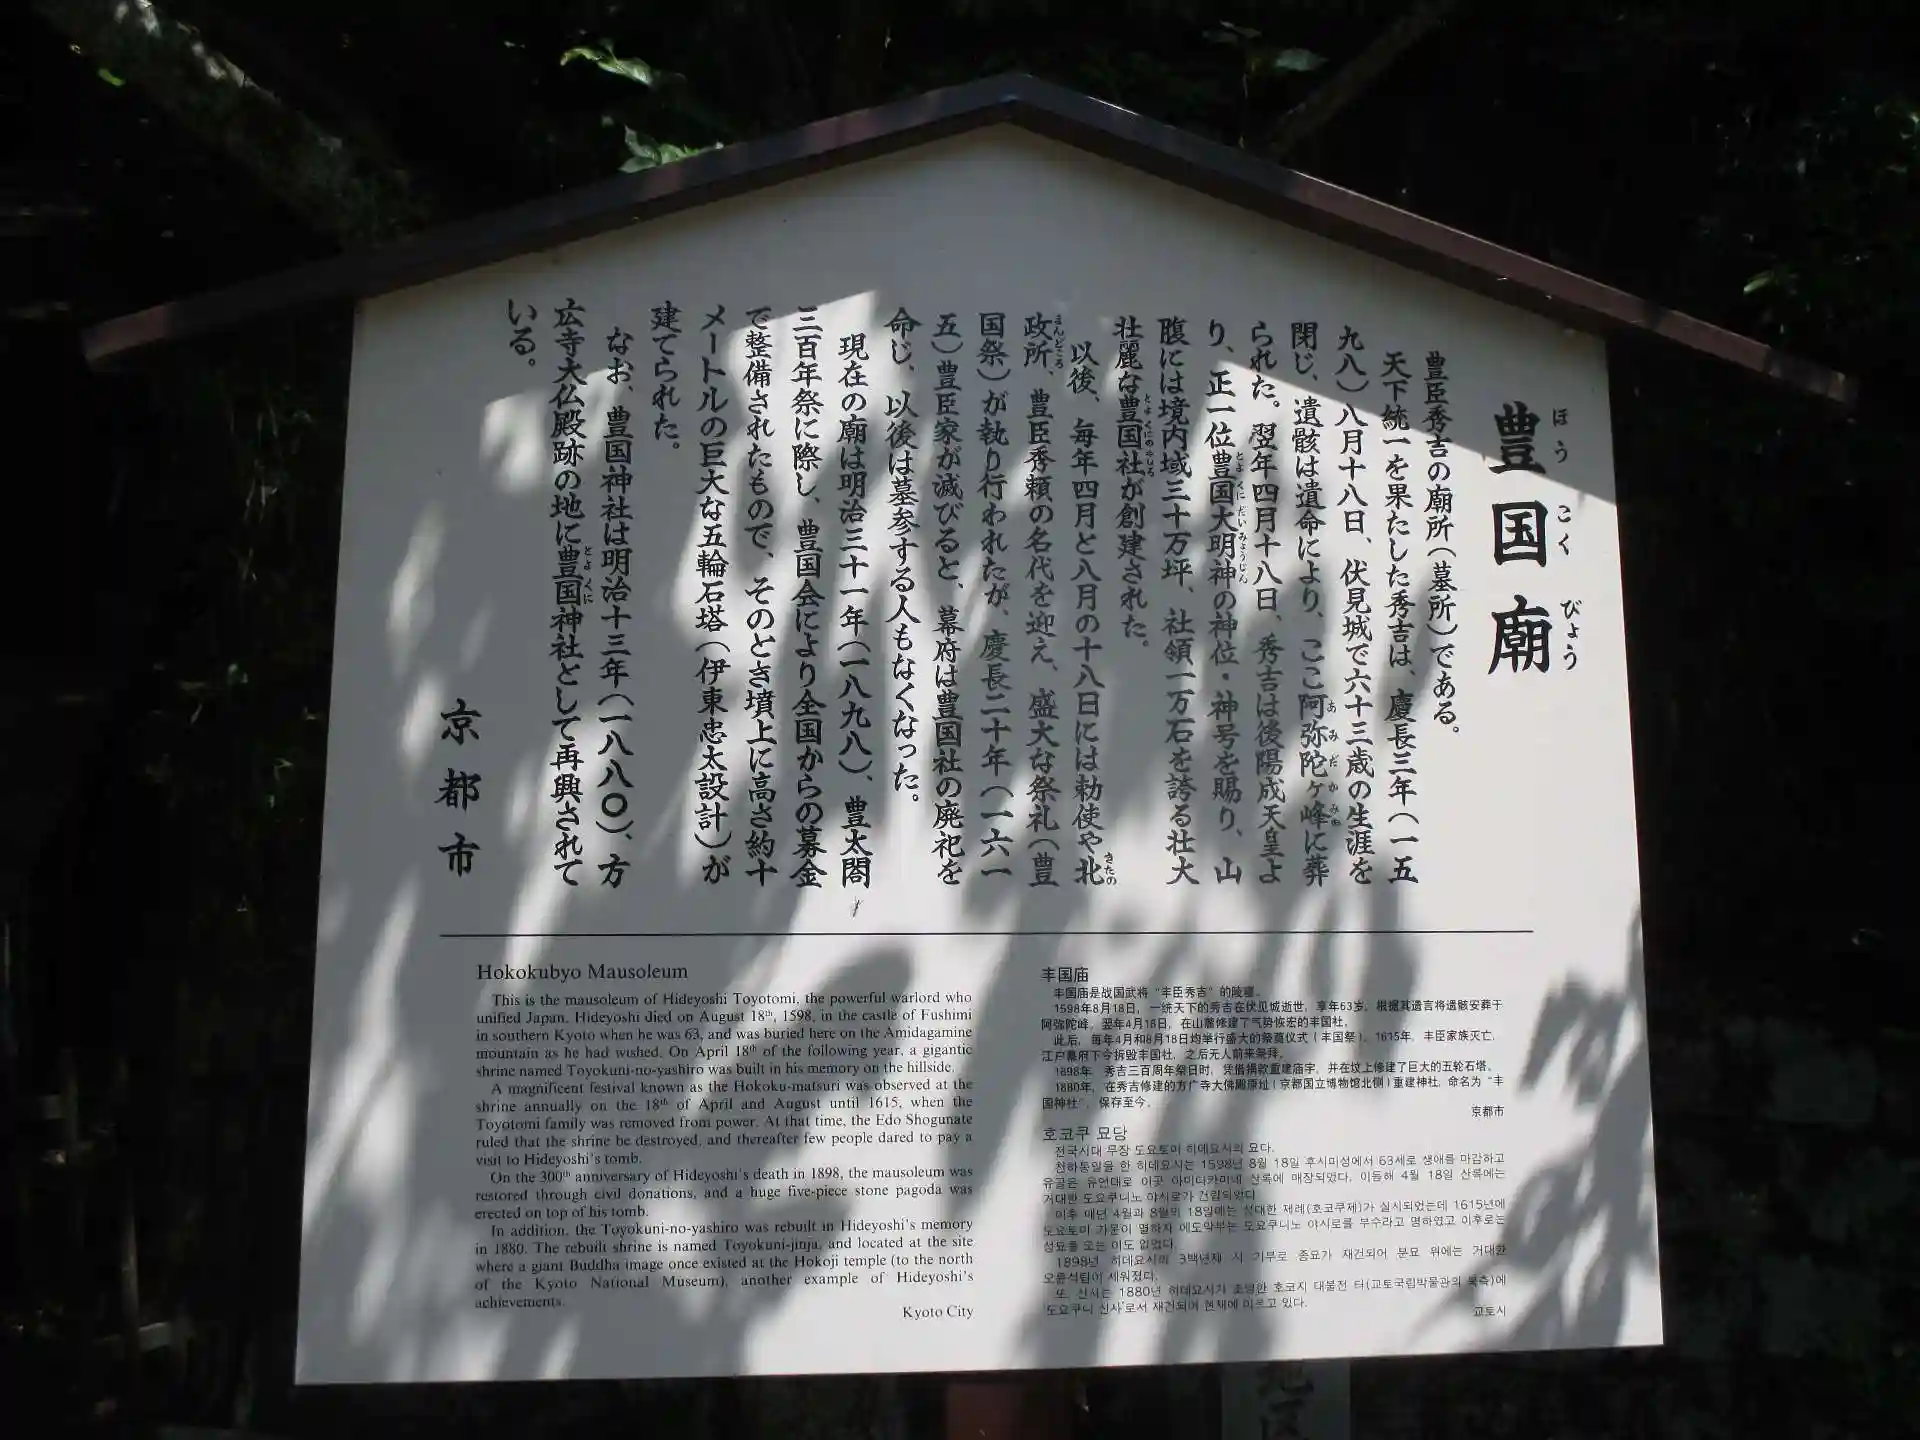 豊国廟
ほうこくびょう
豊臣秀吉の廟所(墓所)である。
天下統一を果たした秀吉は、慶長三年(一五
九八)八月十八日、伏見城で六十三歳の生涯を
閉じ、遺骸は遺命により、ここ阿弥陀ヶ峰に葬
あみだがみね
られた。翌年四月十八日、秀吉は後陽成天皇よ
り、正一位豊国大明神の神位・神号を賜り、山
とよくにだいみょうじん
腹には境内域三十万坪、社領一万石を誇る壮大
壮麗な豊国社が創建された。
とよくにのやしろ
以後、毎年四月と八月の十八日には勅使や北
きたの
政所、豊臣秀頼の名代を迎え、盛大な祭礼(豊
まんどころ
国祭)が執り行われたが、慶長二十年(一六一
五)豊臣家が滅びると、幕府は豊国社の廃祀を
命じ、以後は墓参する人もなくなった。
現在の廟は明治三十一年(一八九八)、豊太閤
三百年祭に際し、豊国会により全国からの募金
で整備されたもので、そのとき墳上に高さ約十
メートルの巨大な五輪石塔(伊東忠太設計)が
建てられた。
なお、豊国神社は明治十三年(一八八〇)、方
広寺大仏殿跡の地に豊国神社として再興されて
とよくに
いる。
京都市
Hokokubyo Mausoleum
This is the mausoleum of Hideyoshi Toyotomi, the powerful warlord who
unified Japan. Hideyoshi died on August 18th, 1598, in the castle of Fushimi
in southern Kyoto when he was 63, and was buried here on the Amidagamine
mountain as he had wished. On April 18th of the following year, a gigantic
shrine named Toyokuni-no-yashiro was built in his memory on the hillside.
A magnificent festival known as the Hokoku-matsuri was observed at the
shrine annually on the 18th of April and August until 1615, when the
Toyotomi family was removed from power. At that time, the Edo Shogunate
ruled that the shrine be destroyed, and thereafter few people dared to pay a
visit to Hideyoshi's tomb.
On the 300th anniversary of Hideyoshi's death in 1898, the mausoleum was
restored through civil donations, and a huge five-piece stone pagoda was
erected on top of his tomb.
In addition, the Toyokuni-no-yashiro was rebuilt in Hideyoshi's memory
in 1880. The rebuilt shrine is named Toyokuni-jinja, and located at the site
where a giant Buddha image once existed at the Hokoji temple (to the north
of the Kyoto National Museum), another example of Hideyoshi's
achievements.
Kyoto City
丰国庙
丰国庙是战国武将“丰臣秀吉”的陵寝。
1598年8月18日,一统天下的秀吉在伏见城逝世,享年63岁。根据其遗言将遗骸安葬于
阿弥陀峰。翌年4月18日,在山麓修建了气势恢宏的丰国社。
此后,每年4月和8月18日均举行盛大的祭奠仪式(丰国祭)。1615年,丰臣家族灭亡,
江户幕府下令拆毁丰国社,之后无人前来祭拜。
1898年,秀吉三百周年祭日时,凭借捐款重建庙宇,并在坟上修建了巨大的五轮石塔。
1880年,在秀吉修建的方广寺大佛殿原址(京都国立博物馆北侧)重建神社,命名为“丰
国神社”,保存至今。
京都市
호코쿠 묘당
전국시대 무장 도요토미 히데요시의 묘다.
천하통일을 한 히데요시는 1598년 8월 18일 후시미성에서 63세로 생애를 마감하고
유골은 유언대로 이곳 아미다가미네 산록에 매장되었다. 이듬해 4월 18일 산록에는
거대한 도요쿠니노 야시로가 건립되었다.
이후 매년 4월과 8월의 18일에는 성대한 제례(호코쿠제)가 실시되었는데 1615년에
도요토미 가문이 멸하자 에도막부는 도요쿠니노 야시로를 부수라고 명하였고 이후로는
성묘를 오는 이도 없었다.
1898년 히데요시의 3백년제 시 기부로 종묘가 재건되어 분묘 위에는 거대한
오륜석탑이 세워졌다.
또, 신사는 1880년 히데요시가 조영한 호코지 대불전 터(교토국립박물관의 북측)에
'도요쿠니 신사'로서 재건되어 현재에 이르고 있다.
교토시